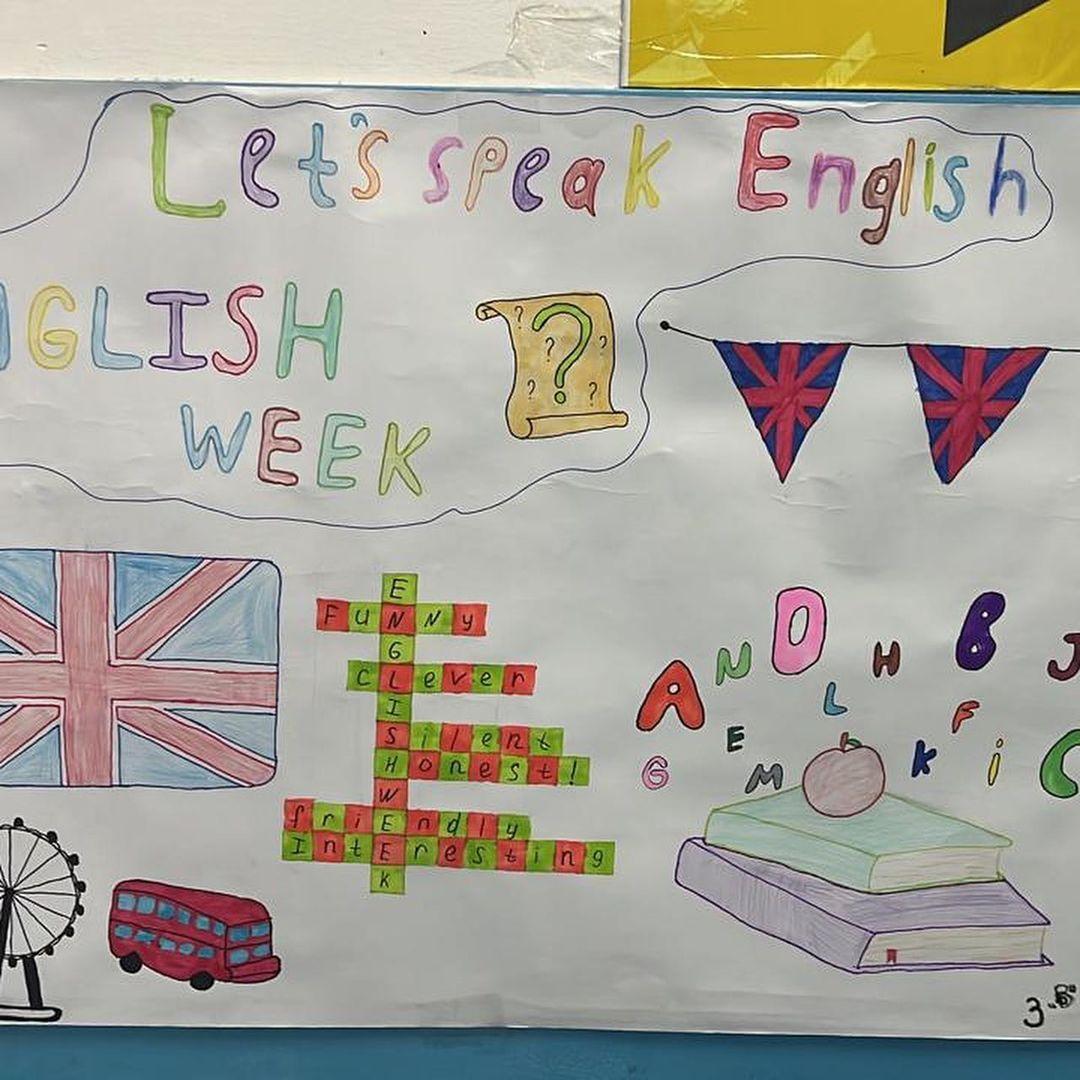 Let's speak English
NGLISH
WEEK
?
? ? ? ? ?
E
FUNNy
G
CLever
I
Silent
Honest!
W
friEndly
IntEresting
K
A N D H B J
L F
G E M K i C
3-B